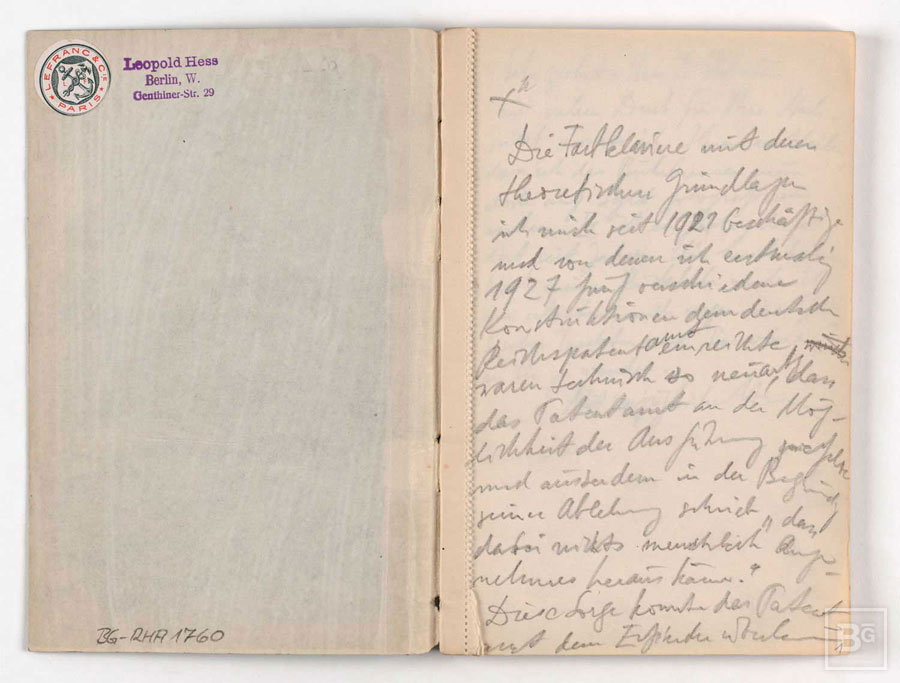 LEFRANC & CIE
PARIS
Leopold Hess
Berlin, W.
Genthiner-Str. 29
BG-RHA 1760
Die Farbklaviere mit deren
theoretischen Grundlagen
ich mich seit 1921 beschäftige
und von denen ich erstmalig
1927 fünf verschiedene
Konstruktionen dem deutschen
Reichspatentamt einreichte,
waren technisch so neuartig, dass
das Patentamt an der Mög-
lichkeit der Ausführung zweifelte
und ausserdem in der Begründung
seiner Ablehnung schrieb „dass
dabei nichts menschlich Ange-
nehmes heraus käme."
Diese Sorge konnte das Patent
dem Erfinder
BG